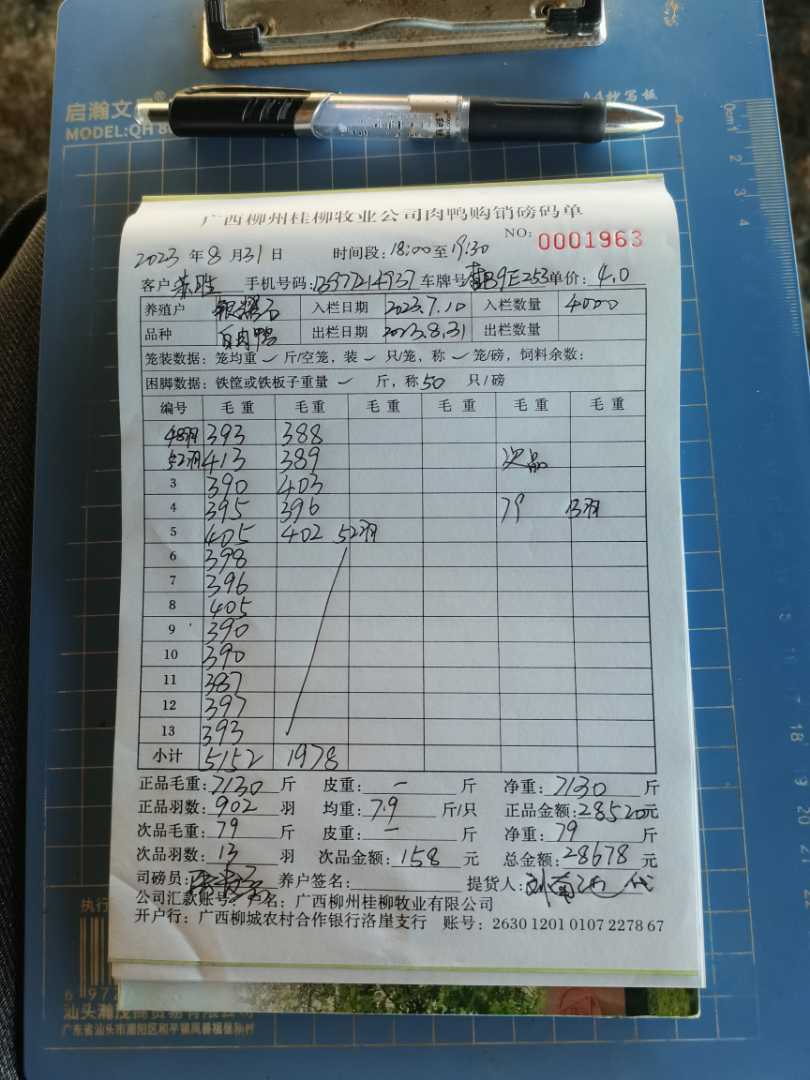 启瀚文
MODEL:QH8
A4抄写板
广西柳州桂柳牧业公司肉鸭购销磅码单
NO: 0001963
2023 年 8 月 31 日 时间段: 18:00 至 19:30
客户 手机号码: 13977214937 车牌号 B9E253 单价: 4.0
养殖户 入栏日期 2023.7.10 入栏数量 4000
品种 白肉鸭 出栏日期 2023.8.31 出栏数量
笼装数据: 笼均重 斤/空笼, 装 只/笼, 称 笼/磅, 饲料余数:
困脚数据: 铁筐或铁板子重量 斤, 称 50 只/磅
编号 毛重 毛重 毛重 毛重 毛重 毛重
48羽 393 388
52羽 413 389 次品
3 390 403
4 395 396 79 13羽
5 405 402 52羽
6 398
7 396
8 405
9 390
10 390
11 387
12 397
13 393
小计 5152 1978
正品毛重: 7130 斤 皮重: — 斤 净重: 7130 斤
正品羽数: 902 羽 均重: 7.9 斤/只 正品金额: 28520 元
次品毛重: 79 斤 皮重: — 斤 净重: 79 斤
次品羽数: 13 羽 次品金额: 158 元 总金额: 28678 元
司磅员: 养户签名: 提货人: 代
公司汇款账号: 户名: 广西柳州桂柳牧业有限公司
开户行: 广西柳城农村合作银行洛崖支行 账号: 2630 1201 0107 2278 67
执行
6 977
广东省汕头市潮阳区和平镇